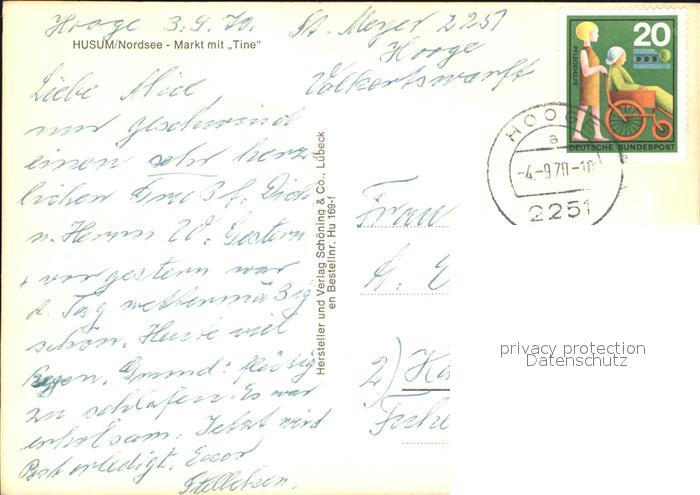 Hooge 3.9.70. St. Meyer 2251
Hooge
Volkertswarft
HUSUM/Nordsee - Markt mit „Tine"
Liebe Alice
nur geschwind
einen sehr herz-
lichen Gruß f. Dich
u. Herrn W. Gestern
+ vorgestern war
d. Tag wettermäßig
schön. Heute viel
Regen. Grund: fleißig
zu schlafen. Es war
erholsam. Jetzt wird
Post erledigt. Euer
Hersteller und Verlag Schöning & Co., Lübeck
en Bestellnr. Hu 169-f
20
PFLEGHILFE
DEUTSCHE BUNDESPOST
HOOGE
a
-4.-9.70-18
2251
Frau
2)
privacy protection
Datenschutz